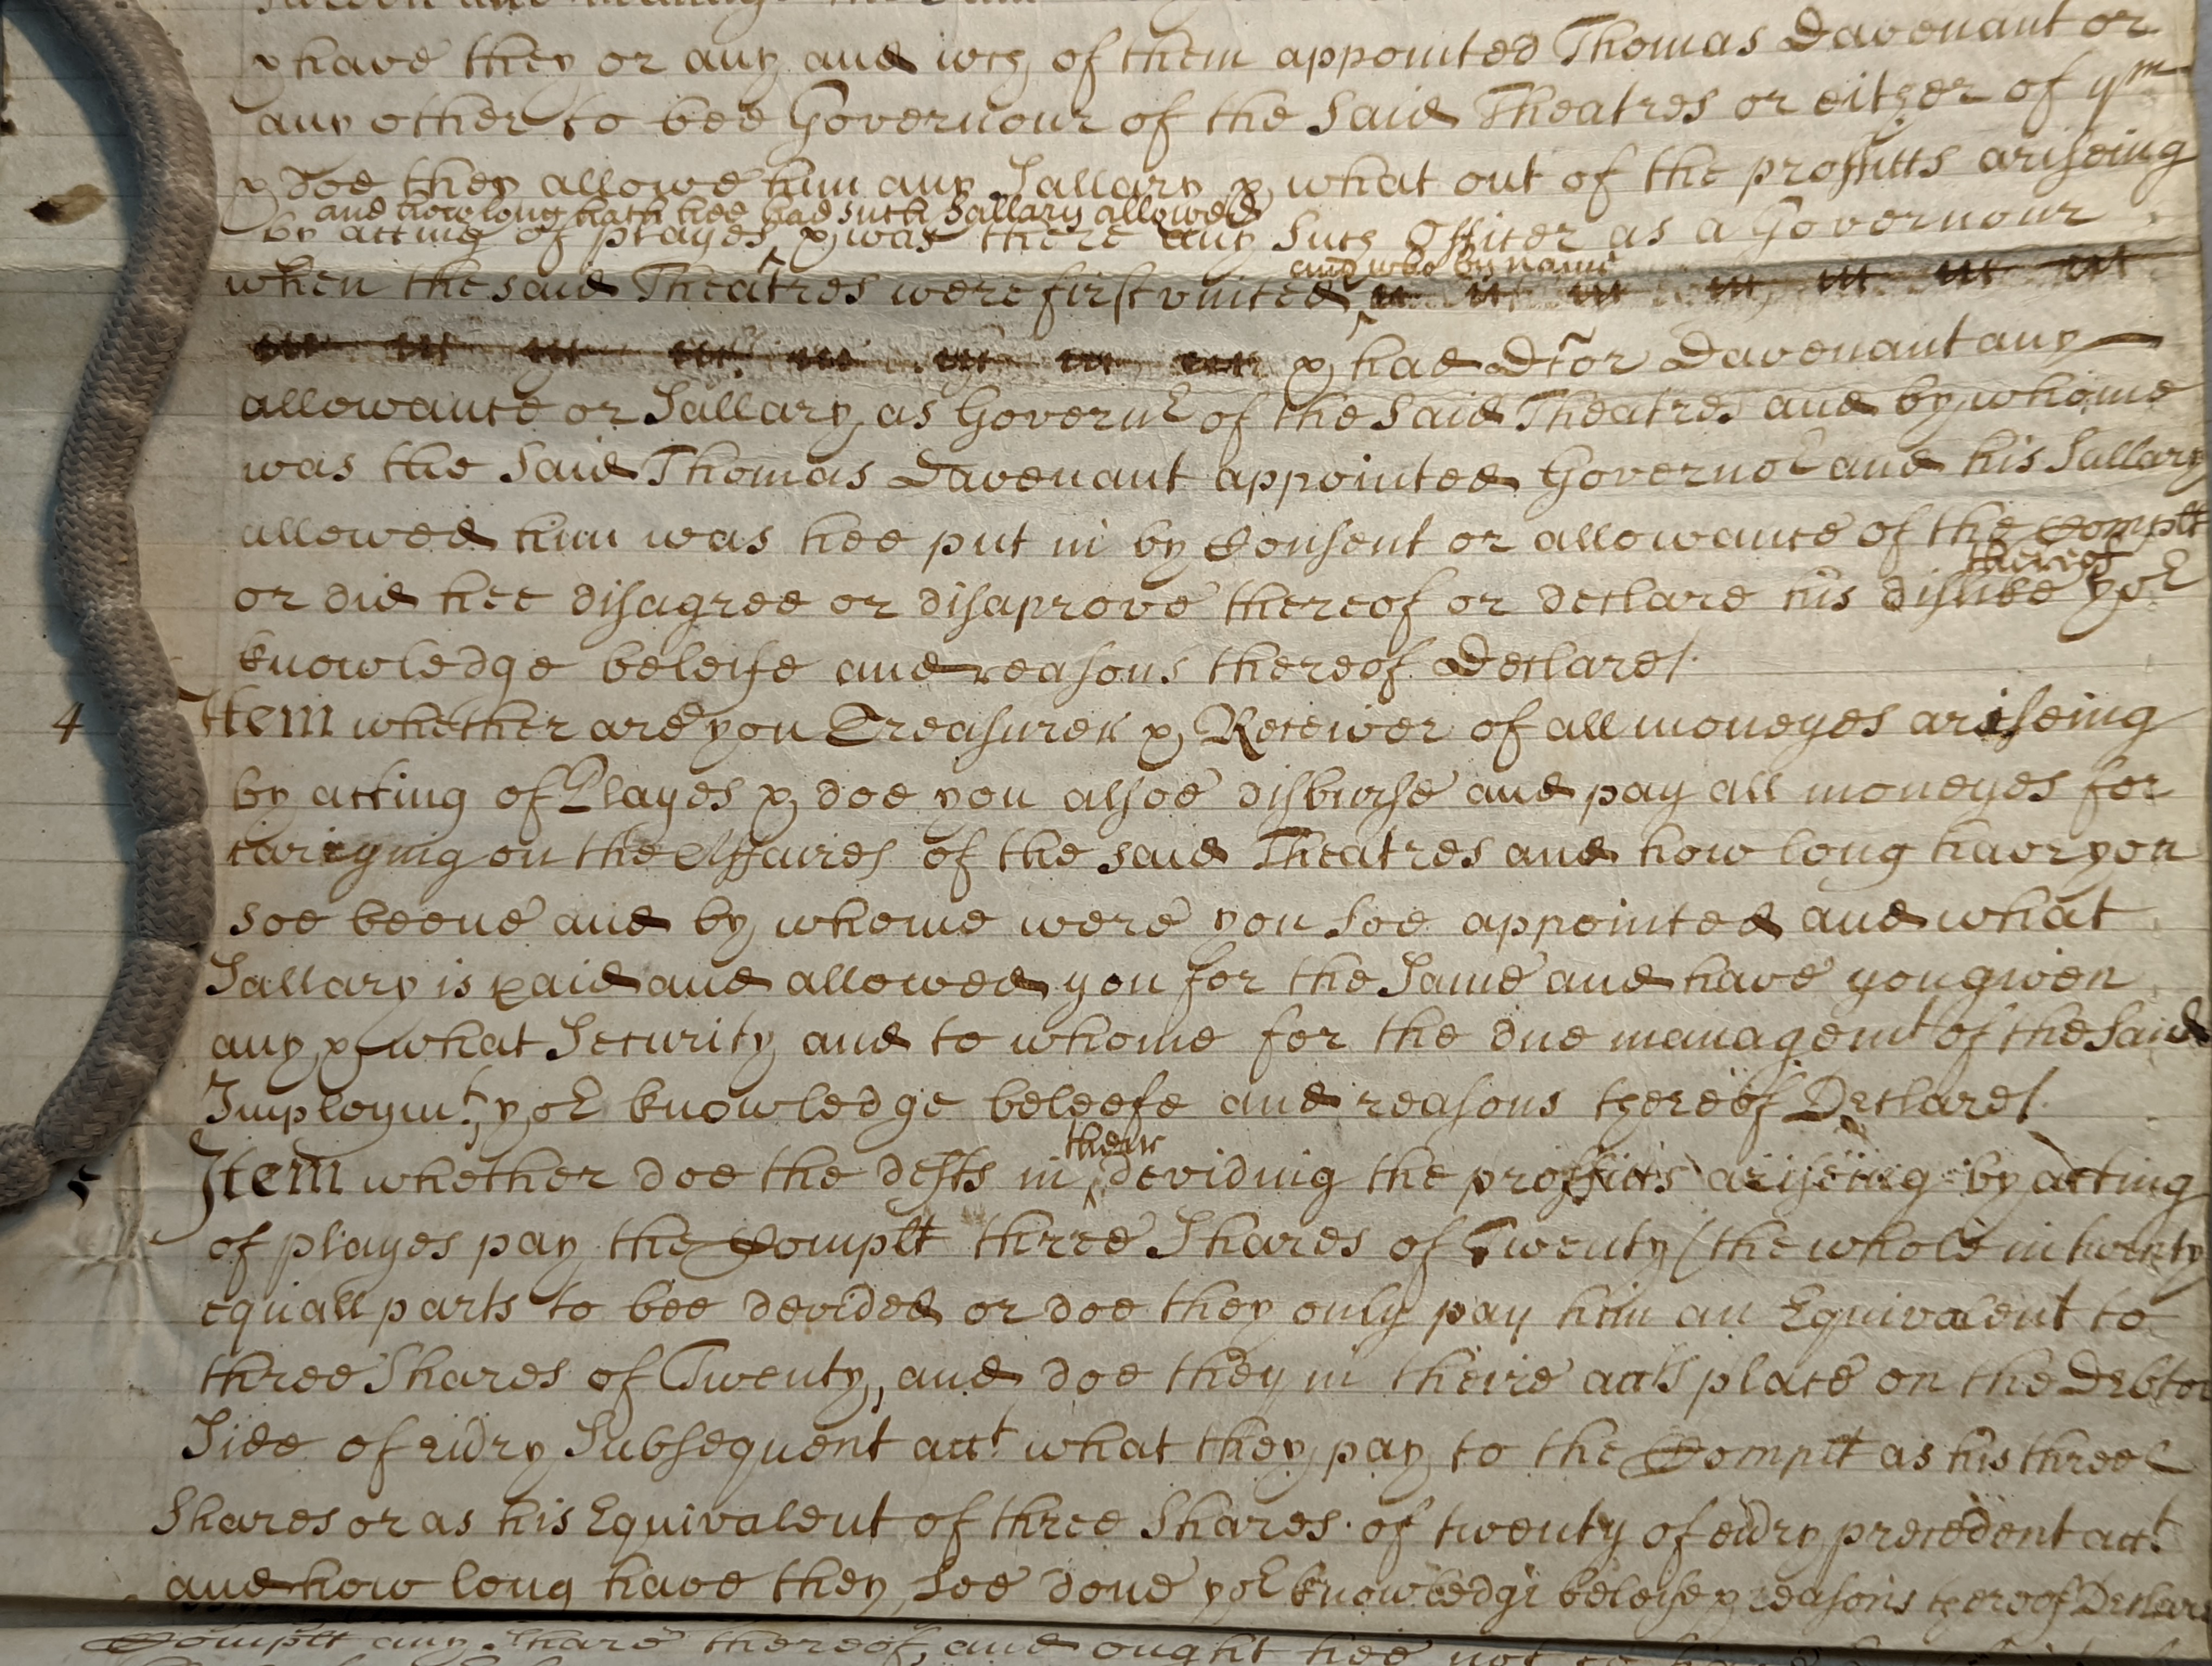 & have they or any and wch of them appointed Thomas Davenant or
any other to bee Governour of the Said Theatres or either of ym
& doe they allowe him any Sallary & what out of the proffitts ariseing
and how long hath hee had such Sallary allowed
by acting of playes & was there any Such Officer as a Governour
and who by name
when the said Theatres were first vnited
& had Dtor Davenant any
allowance or Sallary as Governr of the Said Theatres and by whome
was the Said Thomas Davenant appointed Governor and his Sallary
allowed him was hee put in by Consent or allowance of the Complt
thereof
or did hee disagree or disaprove thereof or declare his dislike yor
knowledge beleife and reasons thereof Declare/.
4 Item whether are you Treasurer & Receiver of all moneyes ariseing
by acting of Playes & doe you alsoe disburse and pay all moneyes for
carrying on the Affaires of the said Theatres and how long have you
soe beene and by whome were you soe appointed and what
Sallary is paid and allowed you for the Same and have you given
any & what Security and to whome for the due managemt of the Said
Imploymt yor knowledge beleefe and reasons thereof Declare/.
their
5 Item whether doe the defts in deviding the proffitts ariseing by acting
of playes pay the Complt three Shares of Twenty (the whole in twenty
equall parts to bee devided or doe they only pay him an Equivalent to
three Shares of Twenty, and doe they in theire accts place on the Debtor
Side of every Subsequent acct what they pay to the Complt as his three
Shares or as his Equivalent of three Shares of twenty of every precedent acct
and how long have they soe done yor knowledge beleife & reasons thereof Declare
Complt any Share thereof, and ought hee not to